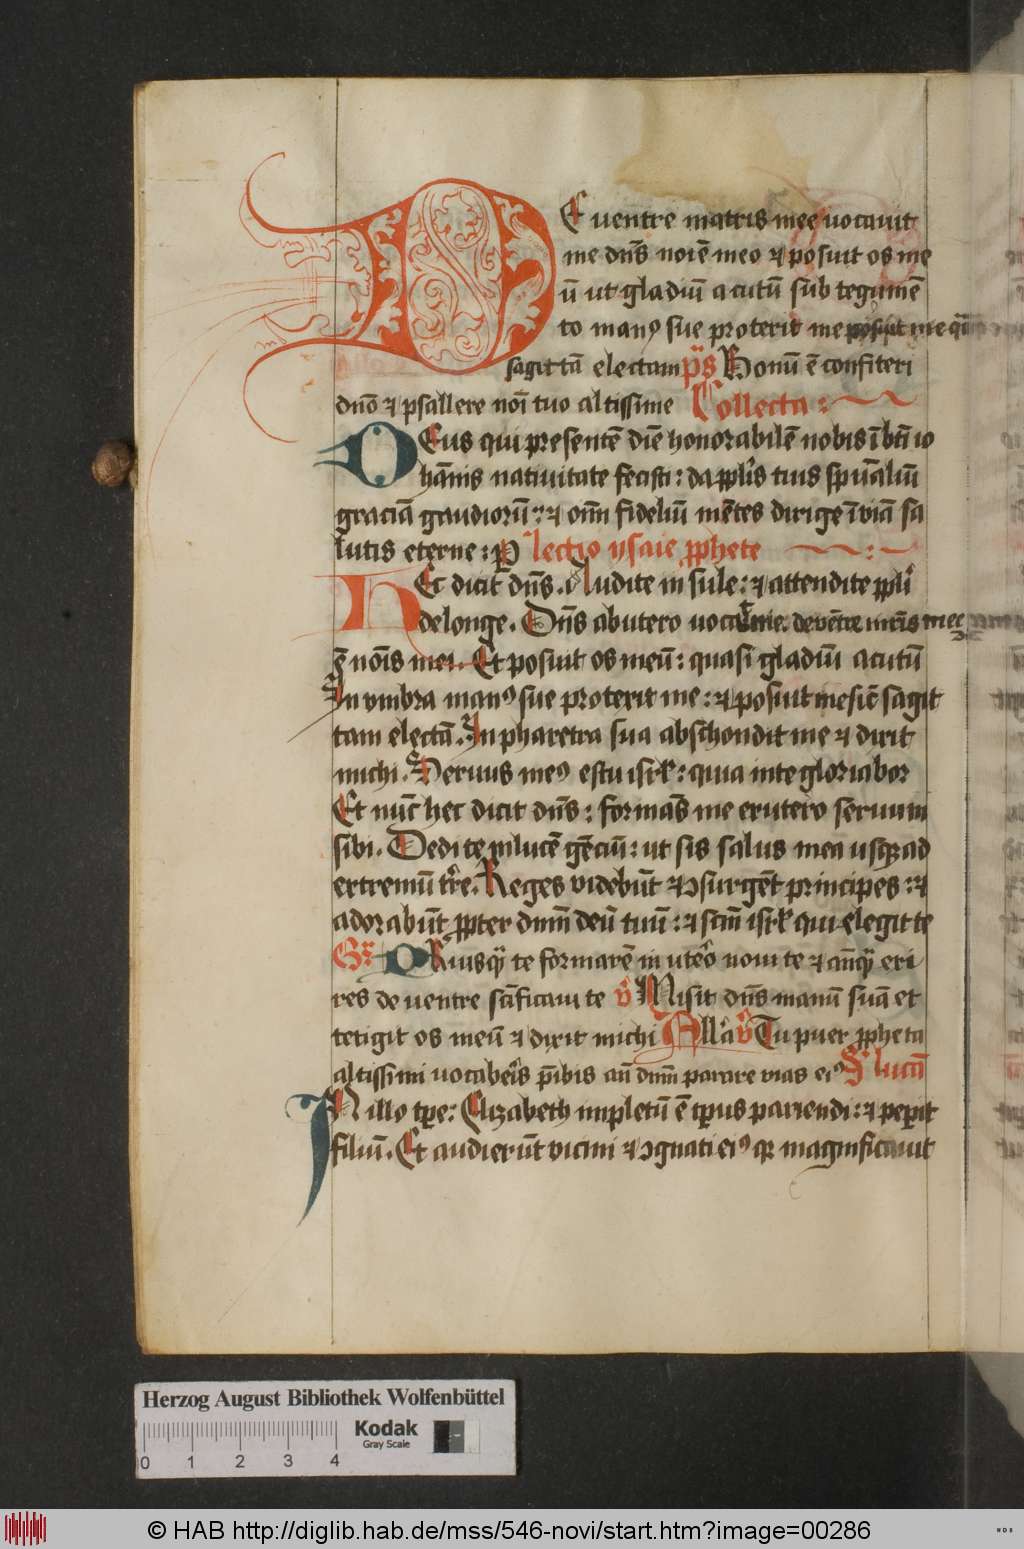 DE ventre matris mee vocavit
me dn̄s noīe meo ⁊ posuit os me
ū ut gladiū acutū sub tegumē
to manꝰ sue protexit me posuit me q̄si
sagittā electam p̄s Bonū ē confiteri
dnō ⁊ psallere noī tuo altissime Collecta:
DEus qui presentē diē honorabilē nobis ī bt̄i io
hānis nativitate fecisti: da pplīs tuis spūaliū
graciā gaudiorū: ⁊ oīm fideliū mētes dirige ī viā sa
lutis eterne: P lectio ysaie pphete
HEc dicit dn̄s. Audite insule: ⁊ attendite ppli
de longe. Dn̄s ab utero vocavit me. de vētre mr̄is mee
ē noīs mei. Et posuit os meū: quasi gladiū acutū
In vmbra manꝰ sue protexit me: ⁊ posuit me sic̄ sagit
tam electā. In pharetra sua abschondit me ⁊ dixit
michi. Seruus meꝰ es tu isrl̄: quia in te gloriabor
Et nūc hec dicit dn̄s: formās me ex utero seruum
sibi. Dedi te in lucē gēciū: ut sis salus mea usqꝫ ad
extremū tr̄e. Reges videbūt ⁊ ꝯsurgēt principes: ⁊
adorabūt ppter dnm̄ deū tuū: ⁊ scm̄ isrl̄ qui elegit te
Gr̄ PRiusq̄ te formarē in uterō novi te ⁊ anteq̄ exi
res de ventre sc̄ificavi te v̄ Misit dn̄s manū suā et
tetigit os meū ⁊ dixit michi Allā v̄ Tu puer ppheta
altissimi vocaberis p̄ibis an̄ dnm̄ parare vias eiꝰ S lucā
IN illo tp̄re: Elizabeth impletū ē tp̄us pariendi: ⁊ peꝑit
filiū. Et audierūt vicini ⁊ ꝯgnati eiꝰ qꝛ magnificavit
Herzog August Bibliothek Wolfenbüttel
Kodak
Gray Scale
0 1 2 3 4
© HAB http://diglib.hab.de/mss/546-novi/start.htm?image=00286